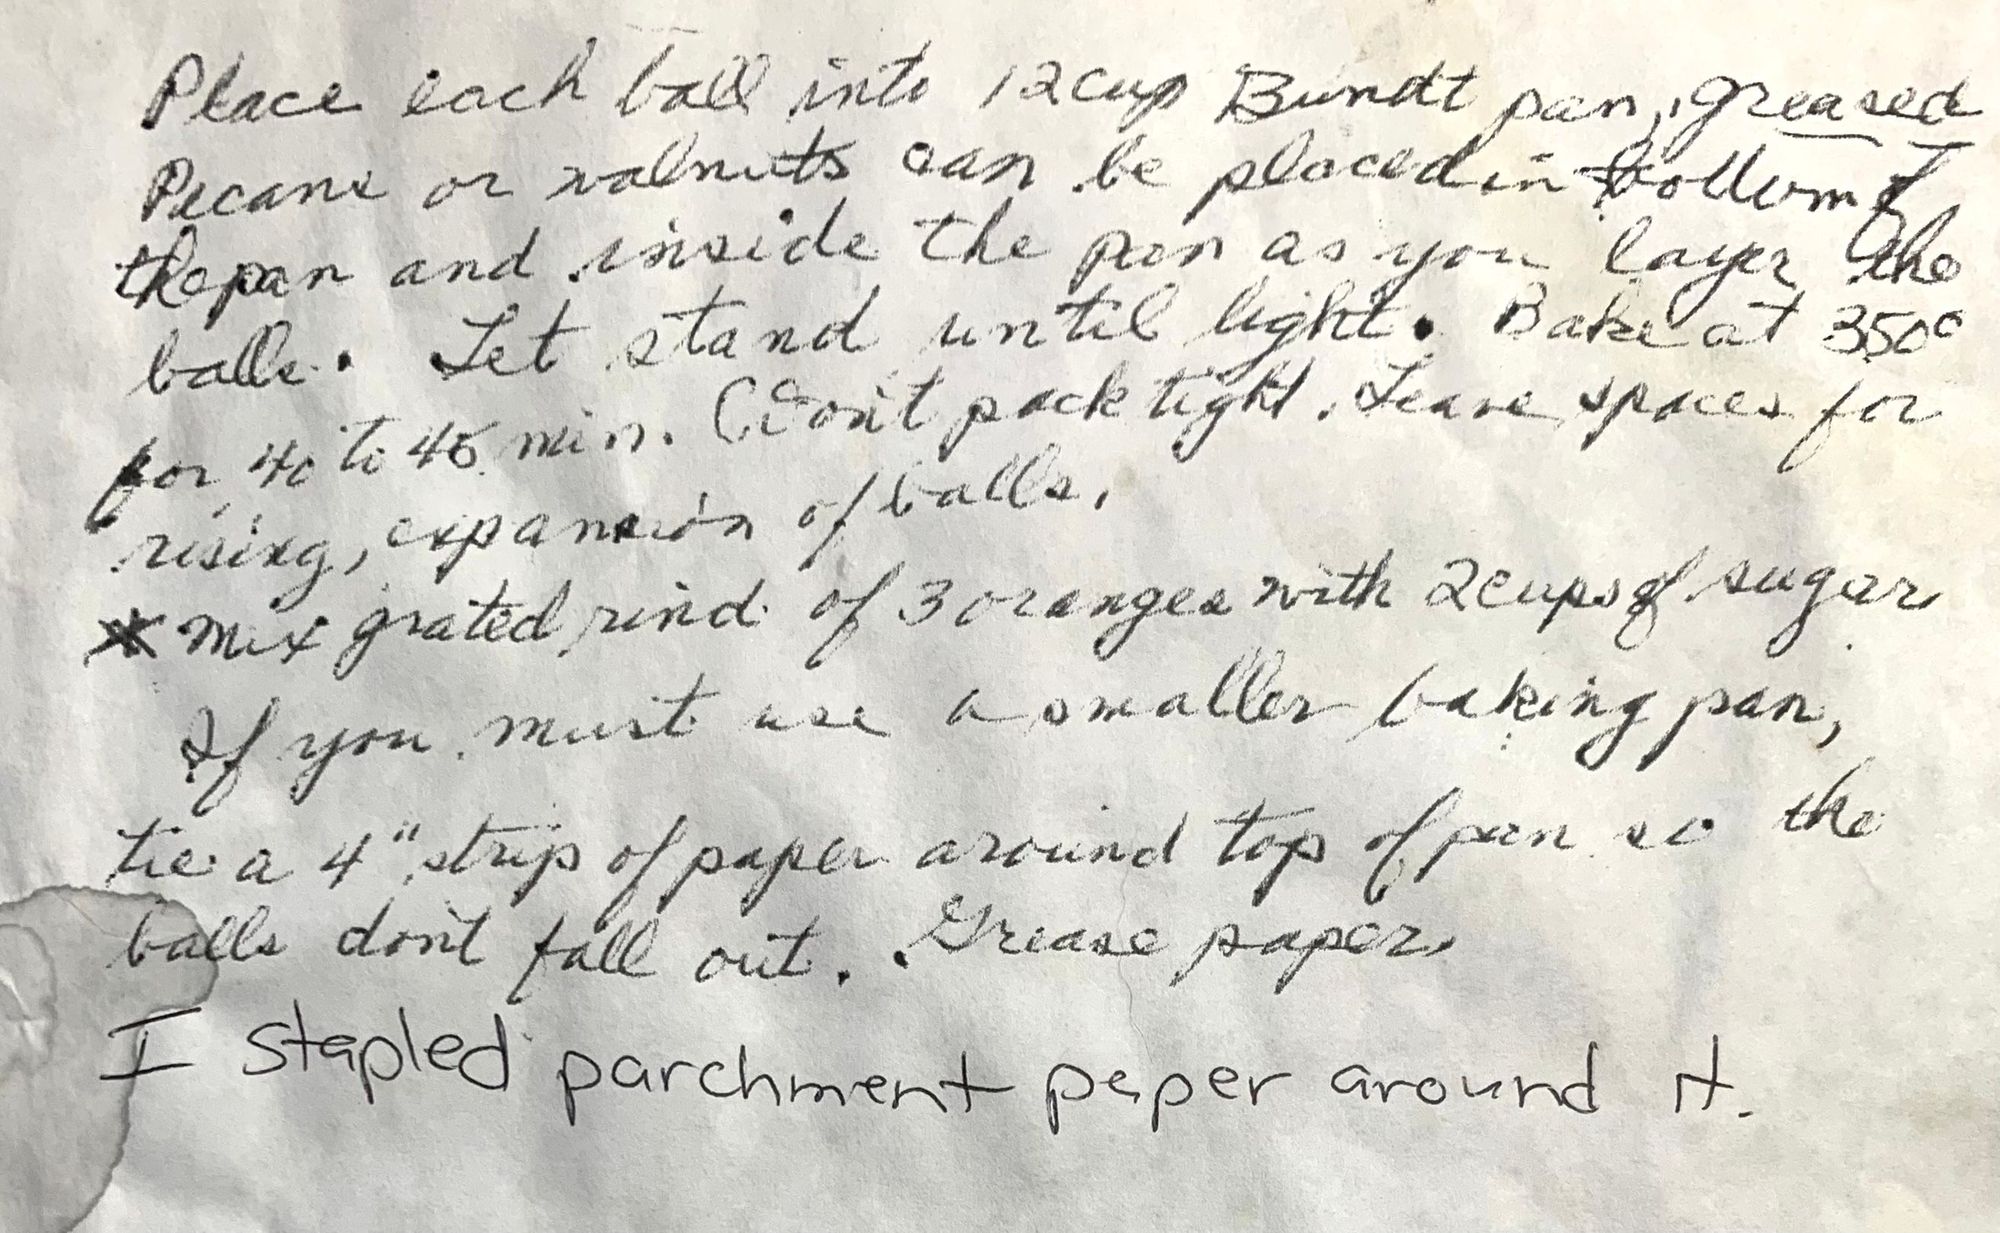 Place each ball into 12 cup Bundt pan, greased
Pecans or walnuts can be placed in bottom of
the pan and inside the pan as you layer the
balls. Let stand until light. Bake at 350°
for 40 to 45 min. (Don't pack tight. Leave spaces for
rising, expansion of balls.
* Mix grated rind of 3 oranges with 2 cups of sugar
If you must use a smaller baking pan,
tie a 4" strip of paper around top of pan so the
balls don't fall out. Grease paper
I stapled parchment paper around it.